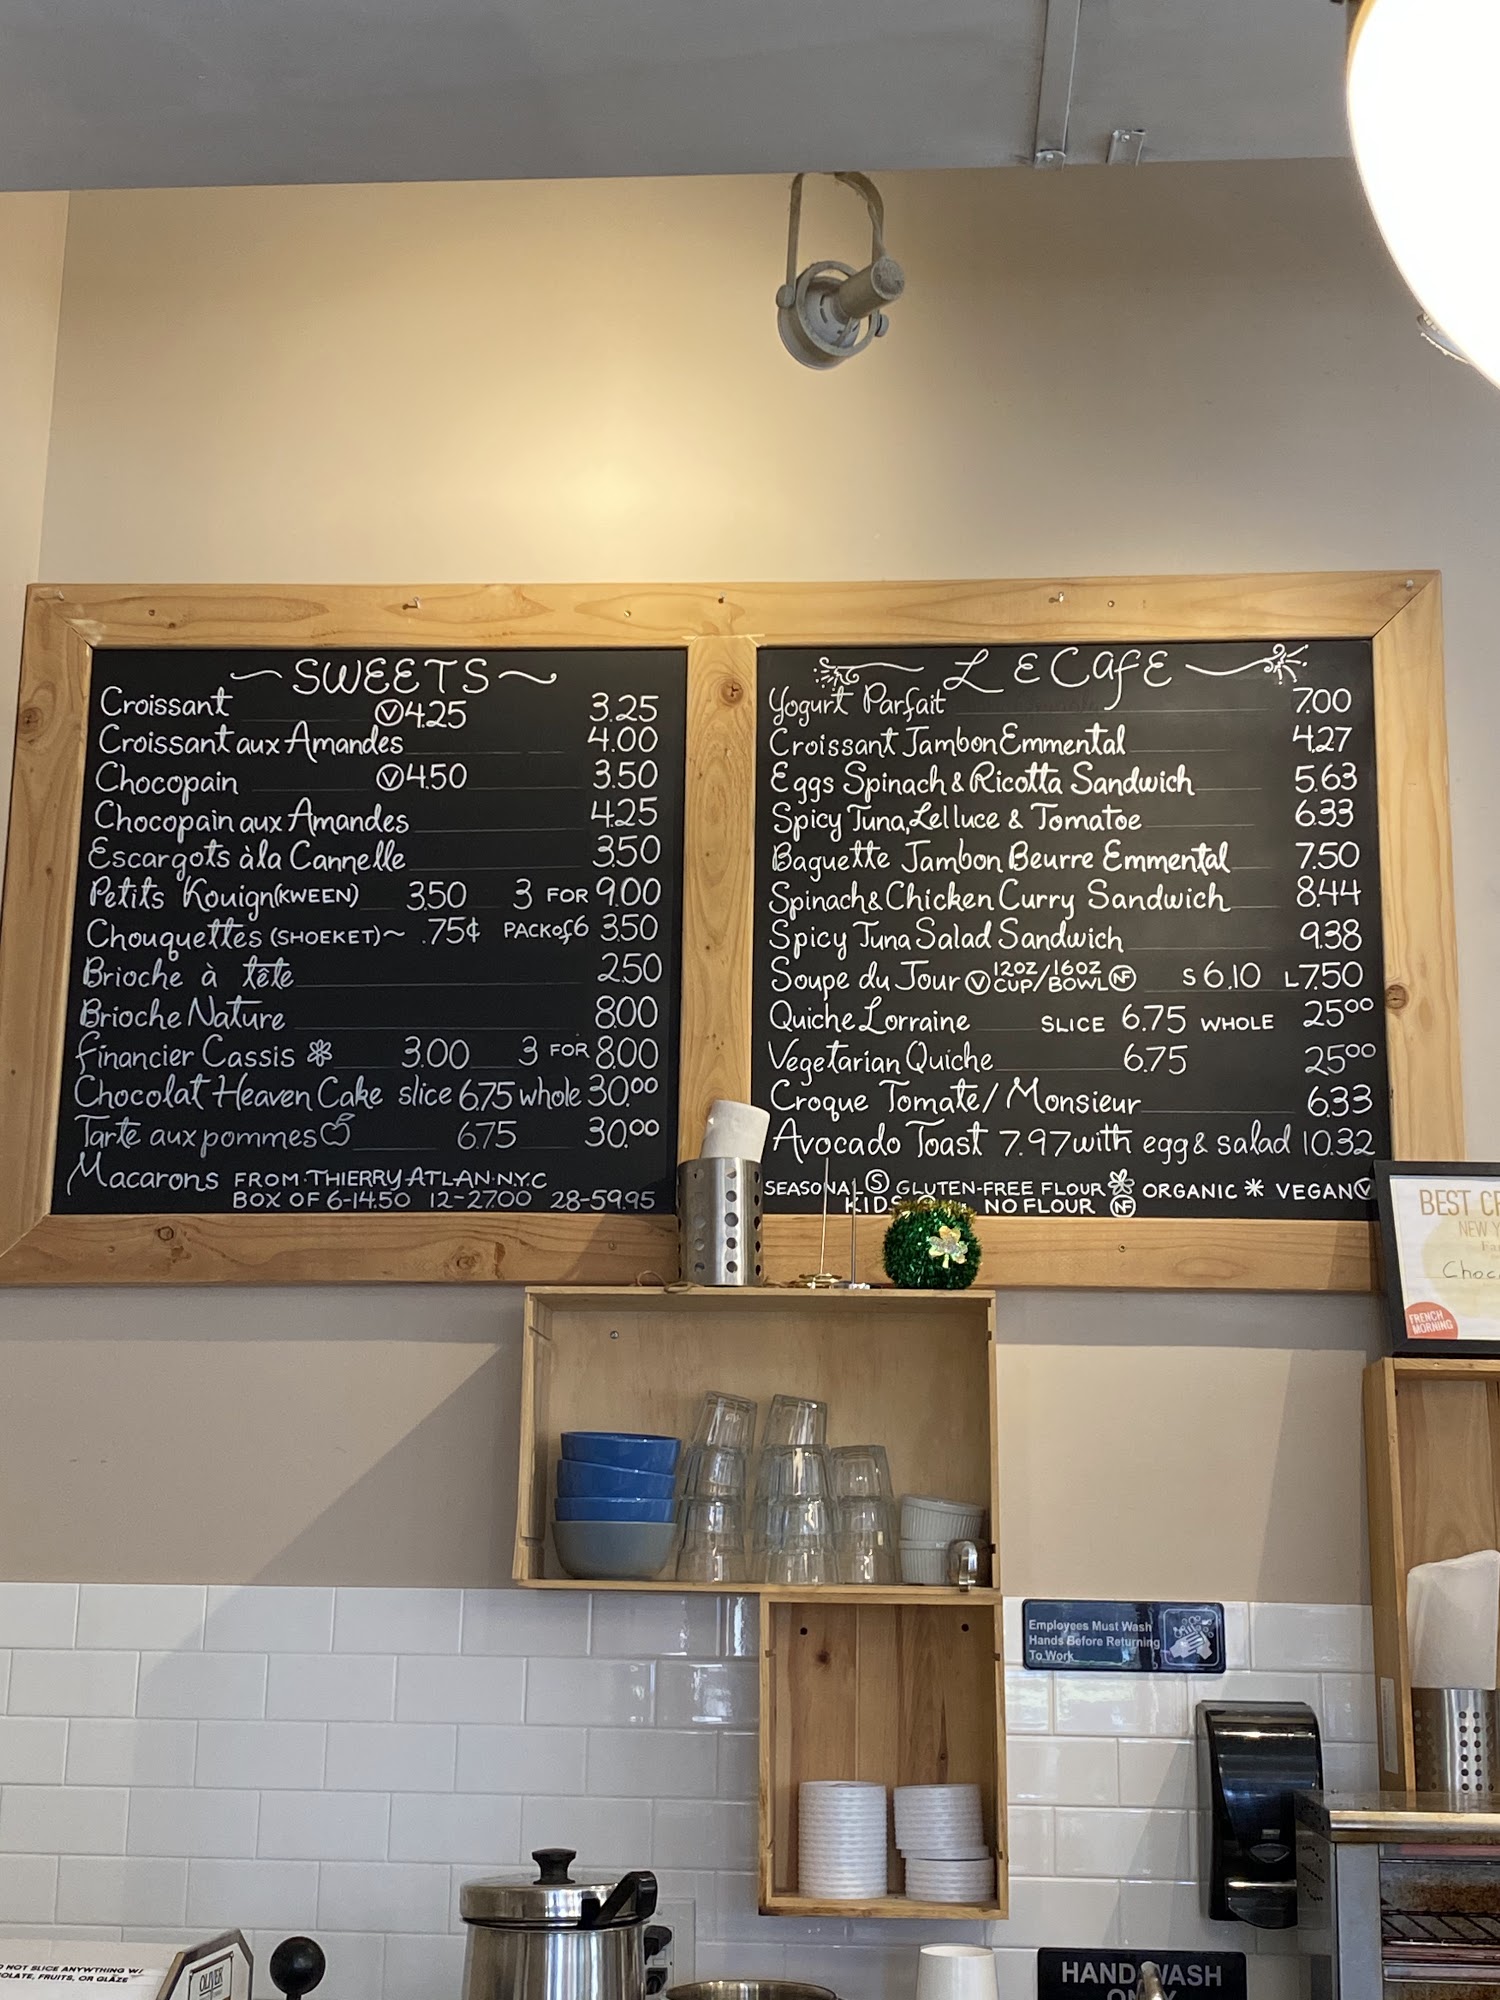 SWEETS
Croissant Ⓥ4.25 3.25
Croissant aux Amandes 4.00
Chocopain Ⓥ4.50 3.50
Chocopain aux Amandes 4.25
Escargots àla Cannelle 3.50
Petits Kouign(KWEEN) 3.50 3 FOR 9.00
Chouquettes (SHOEKET)~ .75¢ PACK of 6 3.50
Brioche à tête 2.50
Brioche Nature 8.00
financier Cassis 3.00 3 FOR 8.00
Chocolat Heaven Cake slice 6.75 whole 30.00
Tarte aux pommes 6.75 30.00
Macarons FROM·THIERRY ATLAN·N.Y.C
BOX OF 6-14.50 12-27.00 28-59.95
LE CAfE
Yogurt Parfait 7.00
Croissant Jambon Emmental 4.27
Eggs Spinach & Ricotta Sandwich 5.63
Spicy Tuna, Lelluce & Tomatoe 6.33
Baguette Jambon Beurre Emmental 7.50
Spinach & Chicken Curry Sandwich 8.44
Spicy Tuna Salad Sandwich 9.38
Soupe du Jour Ⓥ 12OZ/16OZ CUP/BOWL (NF) S 6.10 L 7.50
Quiche Lorraine SLICE 6.75 WHOLE 25.00
Vegetarian Quiche 6.75 25.00
Croque Tomate/Monsieur 6.33
Avocado Toast 7.97 with egg & salad 10.32
SEASONAL Ⓢ GLUTEN-FREE FLOUR ORGANIC * VEGAN Ⓥ
KIDS NO FLOUR (NF)
BEST
NEW
Choc
FRENCH
MORNING
Employees Must Wash
Hands Before Returning
To Work
NOT SLICE ANYWTHING W/
FRUITS, OR GLAZE
OLIVER
HAND WASH
ONLY